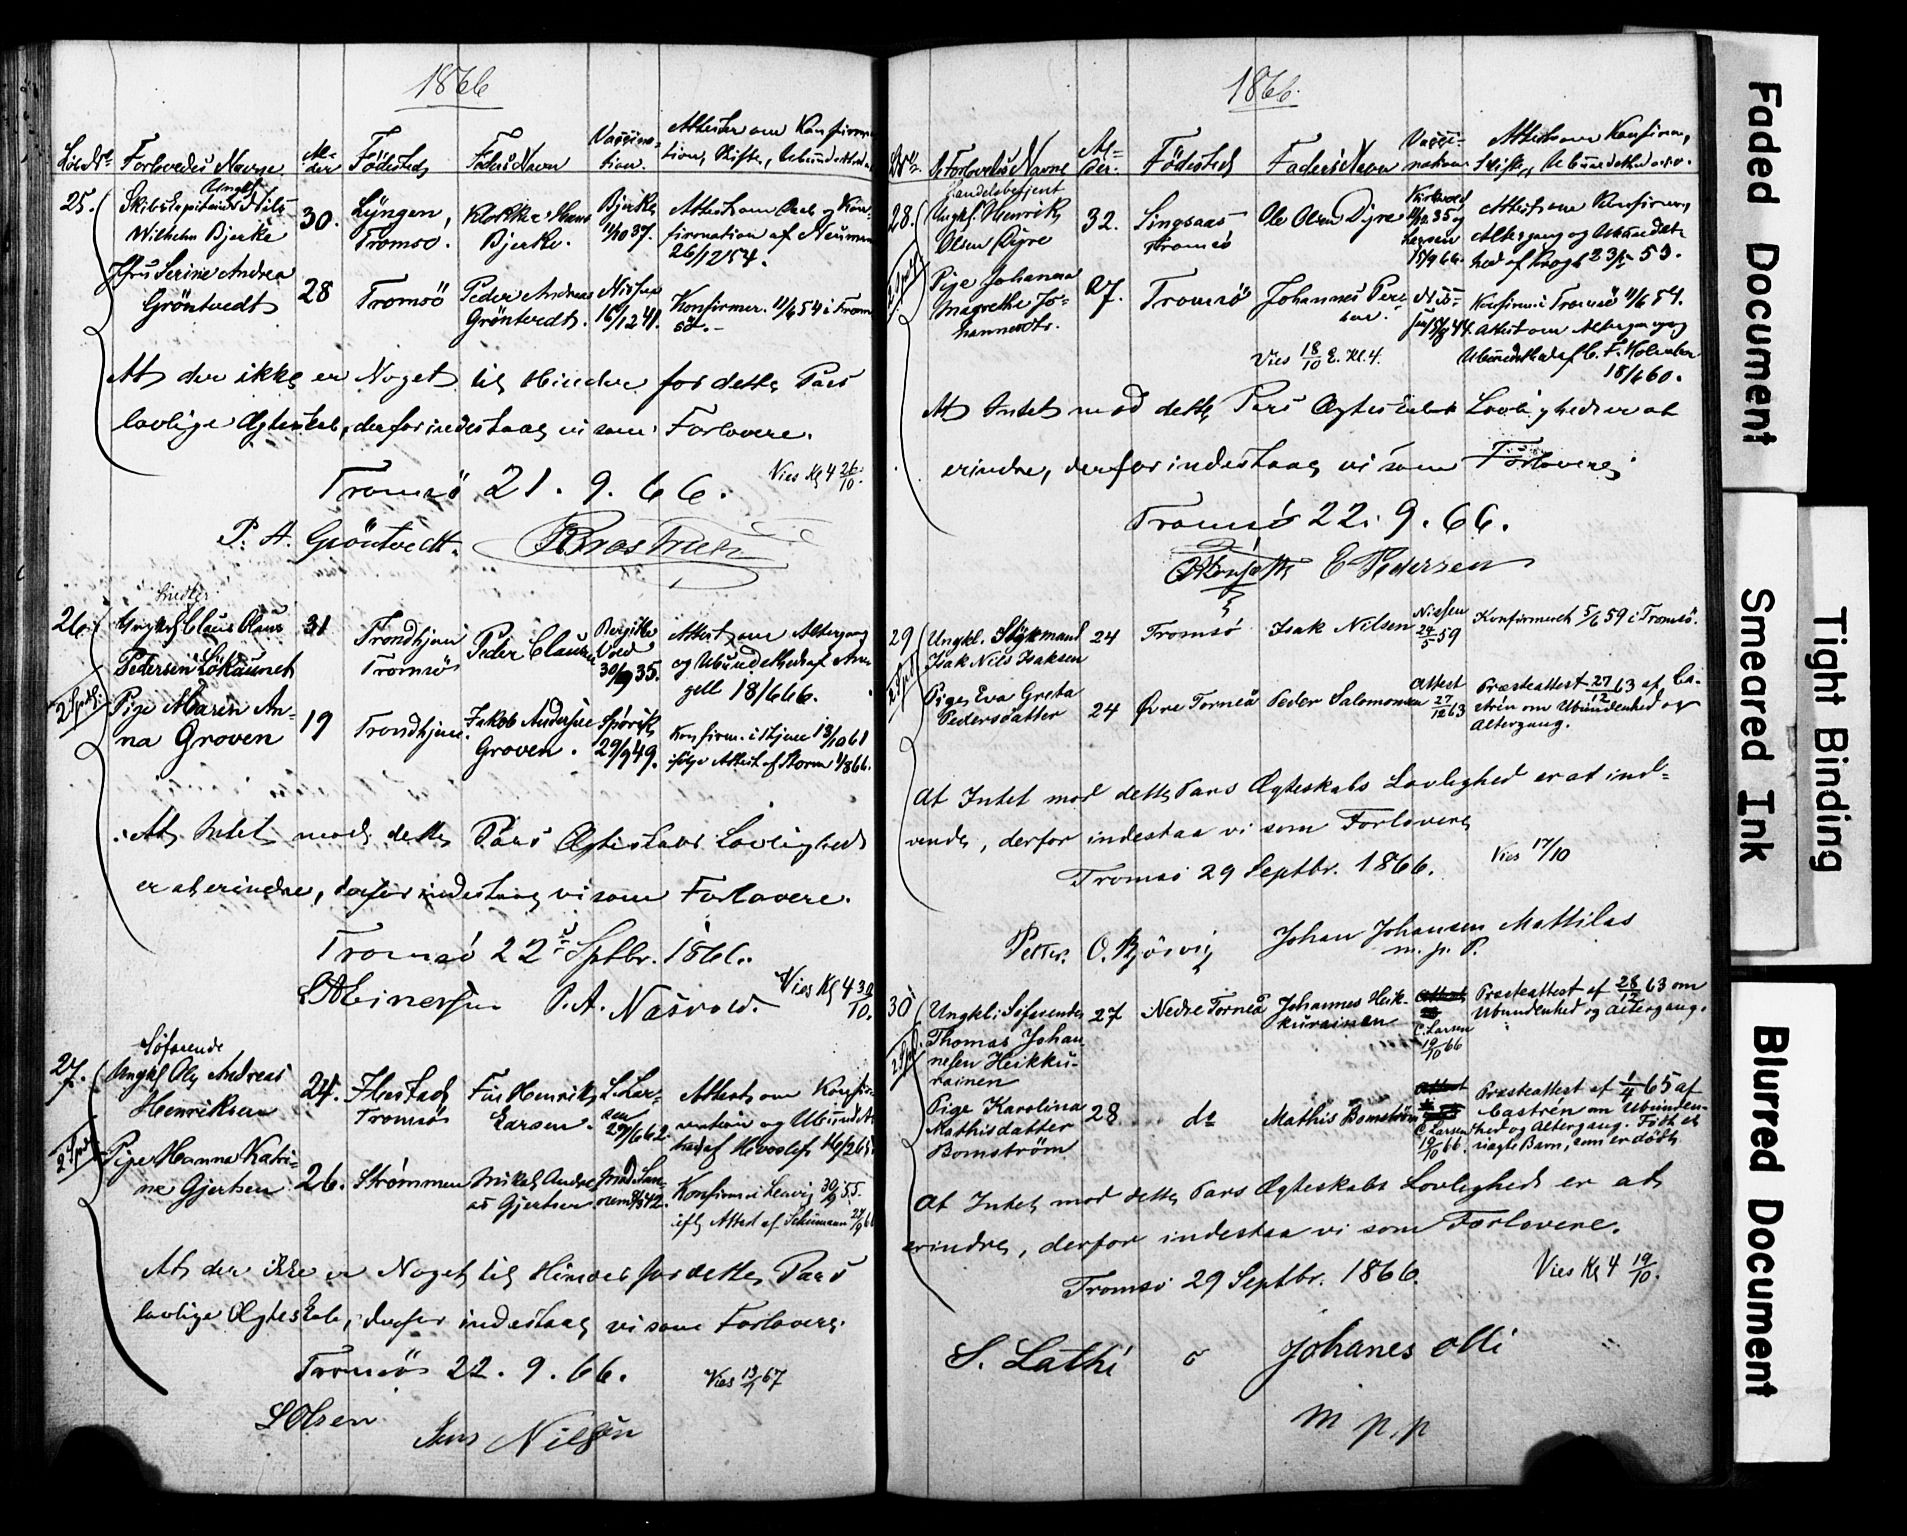 1866
Löbe № Forlovedes Navne Al- der Födested Faders Navn Vaccina- tion Attester om Konfirma- tion, Skifte, Ubundethed
25. Ungkl.
Skibskapitain Nils
Wilhelm Bjerke 30. Lyngen, Tromsö. Klokker Hans Bjerke. Bjerke 11/10 37. Attest om Daab og Kon-
firmation af Neumann
26/12 54.
Jfru Serine Andrea
Gröntvedt 28 Tromsö Peder Andreas Gröntvedt. Nissen 16/12 41. Konfirmer. 11/6 54 i Trom
sö.
At der ikke er Noget til Hinder for dette Pars
lovlige Ægteskab, derfor indestaae vi som Forlovere.
Tromsö 21. 9. 66. Vies Kl 4 26/10.
P. A. Gröntvedt.
26. Smed
Ungkl Claus Olaus
Pedersen Lökaunet 31 Trondhjem Tromsö Peder Clausen Birgitte Vold 30/9 35. Attest om Altergang
og Ubundethed af An-
gell 18/6 66.
2 Spdl.
Pige Maren An-
na Groven 19 Trondhjem. Jakob Andersen Groven. Spörck 29/9 49. Konfirm. i Thjem 13/10 61
ifölge Attest af Storm 1/8 66.
At Intet mod dette Pars Ægteskabs Lovlighed
er at erindre, derfor indestaae vi som Forlovere.
Tromsö 22 Septbr. 1866.
Einersen P. A. Næsvold. Vies Kl 4 30/10.
27. Söfarende
Ungkl Ole Andreas
Henriksen 24. Ibestad Tromsö Fin Henrik Larsen. L. Lar-
sen 29/6 62. Attest om Konfir-
mation og Ubundet
hed af 16/2 65
2 Spd.
Pige Hanna Katri-
ne Gjertsen 26. Strömmen Mikal Andre
as Gjertsen Konfirm i Lenvig 30/9 55.
ifl. Attest af Schümann 24/9 66
At der ikke er Noget til Hinder for dette Pars
lovlige Ægteskab, derfor indestaae vi som Forlovere.
Tromsö 22. 9. 66. Vies 13/1 67
L Olsen
Jens Nilsen
1866.
№ De Forlovedes Navne Al- der. Födested Faders Navn Vacci- nation Attest om Konfirm,
Skifte, Ubundethed o.s.v.
28. Handelsbetjent
Ungkl. Henrik
Olsen Dyre 32. Singsaas Tromsö Ole Olsen Dyre 35 og
Larsen
15/9 66. Attest om Konfirm,
Altergang og Ubundet-
hed af Krogh 53.
Pige Johanna
Magrethe Jo-
hannesdtr. 27. Tromsö Johannes Peter
sen. Nis-
sen 44. Konfirm. i Tromsö 11/6 54.
Attest om Altergang og
Ubundethed af C. F. Holmboe
18/6 60.
Vies 18/10 E. Kl. 4.
At Intet mod dette Pars Ægteskabs Lovlighed er at
erindre, derfor indestaae vi som Forlovere.
Tromsö 22. 9. 66.
E Pedersen
29 Ungkl. Stykmand
Isak Nils Isaksen 24 Tromsö Isak Nilsen Nissen 24/5 59 Konfirmeret 5/6 59 i Tromsö.
Pige Eva Greta
Pedersdatter 24 Övre Torneå Peder Salomonsen Attest 27/12 63 Præsteattest 27/12 63 af Ca-
strén om Ubundenhed og
Altergang.
At Intet mod dette Pars Ægteskabs Lovlighed er at ind-
vende, derfor indestaa vi som Forlovere
Tromsö 29 Septbr. 1866. Vies 17/10
Petter O. Bjösvig Johan Johansen Mattilas
m. p. P.
30 Ungkl. Söfarende
Thomas Johan-
nesen Heikku-
rainen 27 Nedre Torneå Johannes Heik-
kurainen C. Larsen
19/10 66 Præsteattest af 28/12 63 om
Ubundenhed og Altergang.
Pige Karolina
Mathisdatter
Bomström 28. do Mathis Bomström C Larsen
19/10 66. Præsteattest af 1/4 65 af
Castrén om Ubunden-
hed og Altergang. Födt et
uægte Barn, som er dödt.
At Intet mod dette Pars Ægteskabs Lovlighed er at
erindre, derfor indestaa vi som Forlovere.
Tromsö 29 Septbr. 1866. Vies Kl 4 19/10.
S. Lathi o Johanes olli
m p. p
Faded Document
Smeared Ink
Tight Binding
Blurred Document